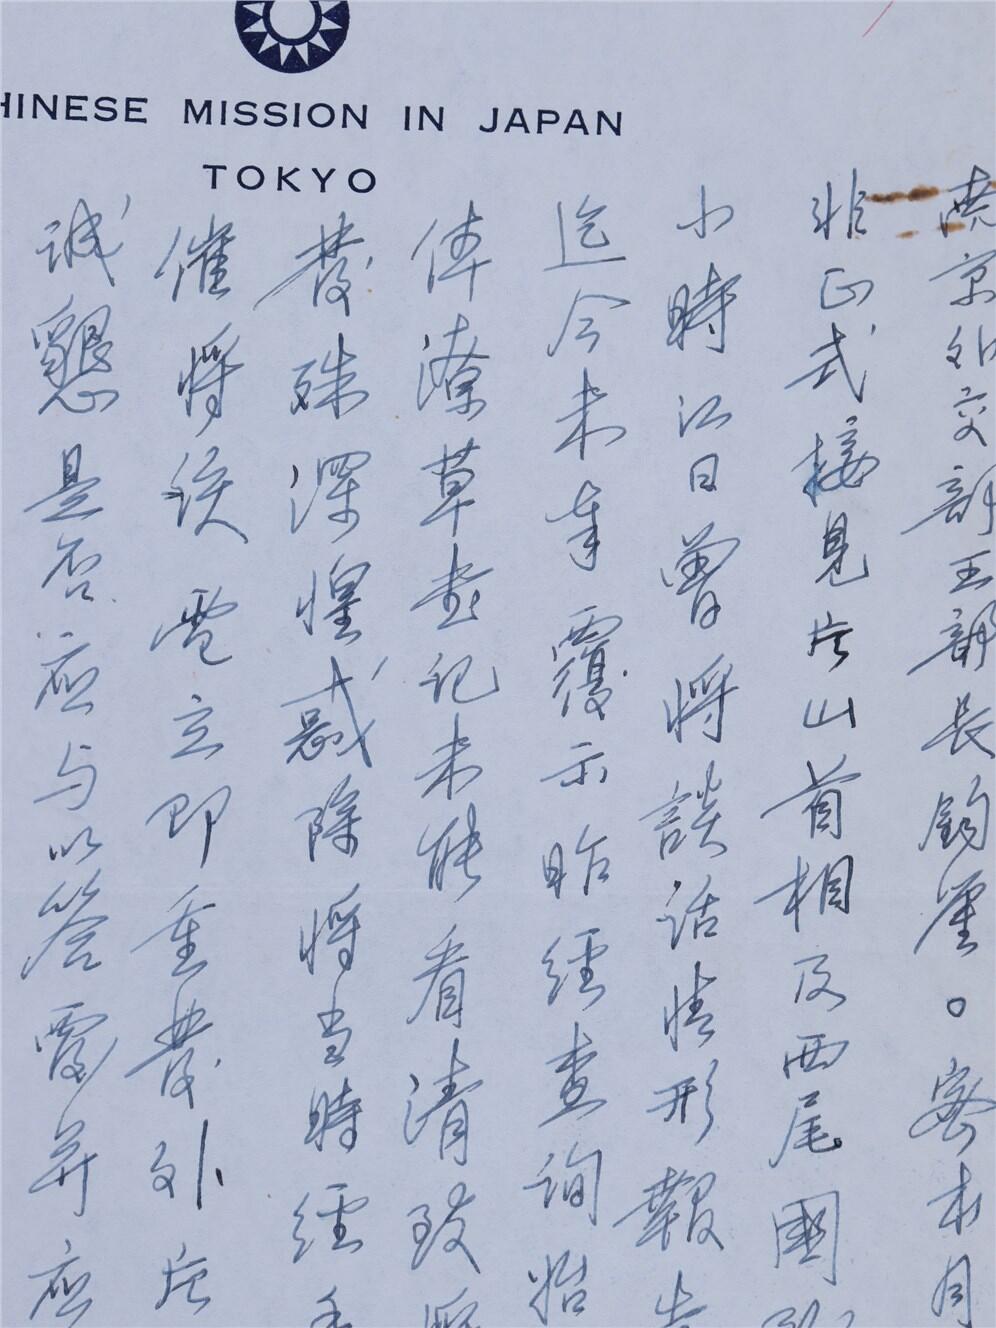 HINESE MISSION IN JAPAN
TOKYO
京外交部王部長鈞鑒。密本月
非正式接見片山首相及西尾國
小時江日曾將談話情形報告
迄今未奉覆示昨經查詢始
倬潦草書記未能看清致
發殊深惶惑除將當時經
催將該電立即重發外片
誠懇是否應与以答覆并應